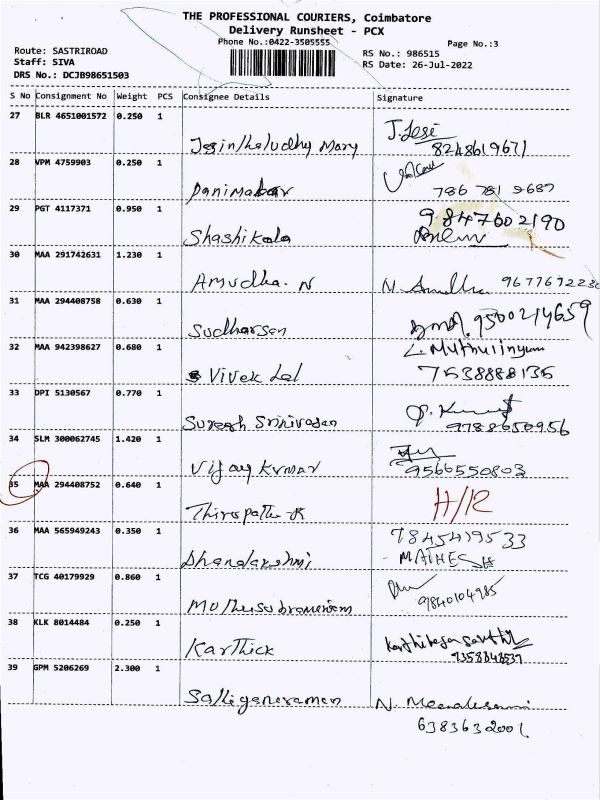 THE PROFESSIONAL COURIERS, Coimbatore
Delivery Runsheet - PCX
Phone No.:0422-3505555
Page No.:3
Route: SASTRIROAD
RS No.: 986515
Staff: SIVA
RS Date: 26-Jul-2022
DRS No.: DCJB98651503
S No Consignment No Weight PCS Consignee Details Signature
27 BLR 4651001572 0.250 1 Mary J. Jose
8248619671
28 VPM 4759903 0.250 1
786 781 9687
29 PGT 4117371 0.950 1 Shashikala 9847602190
30 MAA 291742631 1.230 1 Amudha. N N. Amudha
31 MAA 294408758 0.630 1 Sudharsen 9500214659
32 MAA 942398627 0.680 1 Vivek Lal
7538888135
33 DPI 5130567 0.770 1 Suresh Srinivasan
9788650956
34 SLM 300062745 1.420 1 Vijay Kumar
9566550803
35 MAA 294408752 0.640 1 Thirupathi R
36 MAA 565949243 0.350 1 Dhanalakshmi 7845419533
37 TCG 40179929 0.860 1 9840104985
38 KLK 8014484 0.250 1 Karthick
39 GPM 5206269 2.300 1 N. Meenakshi
6383632001